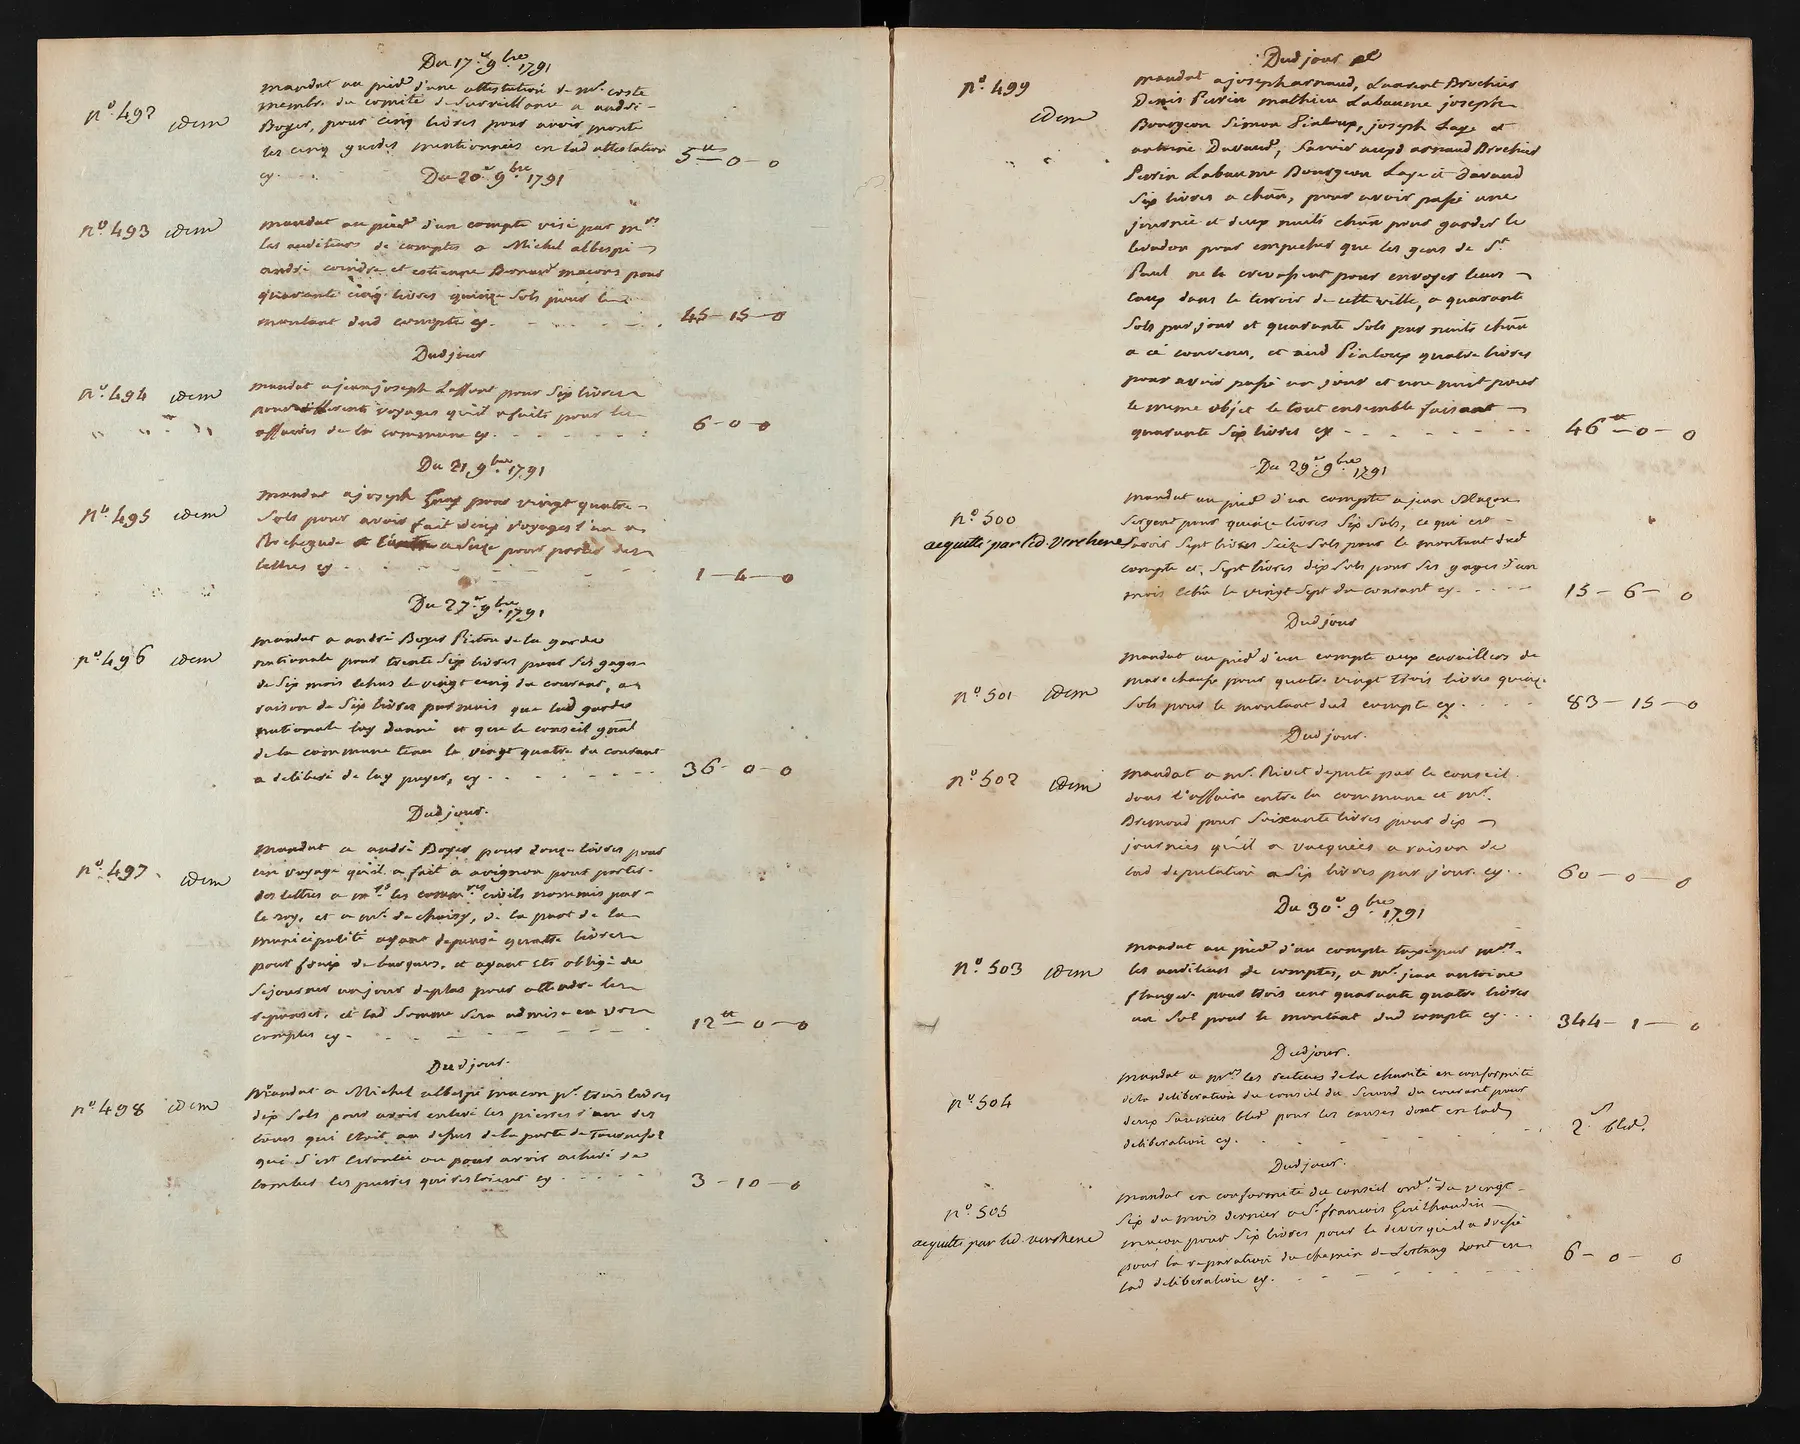 Du 17.e 9bre 1791
n.º 492 idem
mandat au pied d'une attestation de mr. coste
membre du comité de surveillance a andré
Boyer, pour cinq livres pour avoir monté
les cinq gardes mentionnées en lad attestation
cy. 5tt—0—0
Du 20.e 9bre 1791
n.º 493 idem
mandat au pied d'un compte visé par mrs
les auditeurs de comptes a Michel albespi
andré coindre et estienne Bernard macons pour
quarante cinq livres quinze sols pour le
montant dud compte cy. 45—15—0
Dud jour
n.º 494 idem
mandat a jean joseph Laffont pour six livres
pour differents voyages qu'il a faits pour les
affaires de la commune cy. 6-0-0
Du 21 9bre 1791
n.º 495 idem
mandat a joseph pour vingt quatre
sols pour avoir fait deux voyages l'un a
Rochegude et l'autre a Suze pour porter des
lettres cy 1—4—0
Du 27.e 9bre 1791
n.º 496 idem
mandat a andré Boyer Pieton de la garde
nationale pour trente six livres pour ses gages
de six mois echus le vingt cinq du courant, a
raison de six livres par mois que lad garde
nationale luy donne et que le conseil gñal
de la commune tenu le vingt quatre du courant
a deliberé de luy payer, cy. 36-0-0
Dud jour.
n.º 497. idem
mandat a andré Boyer pour douze livres pour
un voyage qu'il a fait a avignon pour porter
des lettres a mrs les commres civils nommés par
le roy, et a mr. de choisy, de la part de la
municipalité ayant depensé quatre livres
pour fraix de barques, et ayant été obligé de
sejourner un jour de plus pour attendre les
reponses, et lad somme sera admise en vos
comptes cy. 12tt—0—0
Dud jour.
n.º 498 idem
Mandat a Michel albespi macon pr. trois livres
dix sols pour avoir enlevé les pierres d'une des
tours qui etoit au dessus de la porte de Tournefol
qui s'est ecroulée ou pour avoir achevé de
tomber les pierres qui restoient cy 3-10-0
Dud jour
n.º 499
idem
mandat a joseph arnaud, Laurent Brochier
Denis Perrin mathieu Labaume joseph
Bourgeon Simon Pialoup, joseph Laye et
antoine Davaud, savoir auxd arnaud Brochier
Perrin Labaume Bourgeon Laye et Davaud
six livres a chün, pour avoir passé une
journée et deux nuits chün pour garder le
levadon pour empecher que les gens de St.
Paul ne le crevassent pour envoyer leurs
eaux dans le terroir de cette ville, a quarante
sols par jour et quarante sols par nuits chün
a cé convenu, et aud Pialoup quatre livres
pour avoir passé un jour et une nuit pour
le meme objet le tout ensemble faisant
quarante six livres cy 46tt—0—0
Du 29.e 9bre 1791
n.º 500
acquitté par led. Verchere
mandat au pied d'un compte a jean Maçon
sergent pour quinze livres six sols, ce qui est
savoir sept livres seize sols pour le montant dud
compte et sept livres dix sols pour ses gages d'un
mois echu le vingt sept du courant cy. 15-6-0
Dud jour
n.º 501 idem
mandat au pied d'un compte aux cavaliers de
marechaussé pour quatre vingt trois livres quinze
sols pour le montant dud compte cy 83-15-0
Dud jour.
n.º 502 idem
mandat a mr. Rivet deputé par le conseil
dans l'affaire entre la commune et mr.
Bremond pour soixante livres pour dix
journées qu'il a vacquées a raison de
lad deputation a six livres par jour cy. 60—0—0
Du 30.e 9bre 1791
n.º 503 idem
mandat au pied d'un compte taxé par mrs.
les auditeurs de comptes, a mr. jean antoine
flauger pour trois cent quarante quatre livres
un sol pour le montant dud compte cy. 344-1-0
Dud jour.
n.º 504
mandat a mrs les recteurs de la charité en conformité
de la deliberation du conseil du second du courant pour
deux saumées bled pour les causes dont en lad
deliberation cy. 2 s bled.
Dud jour.
n.º 505
acquitté par led. verchere
mandat en conformité du conseil ordre du vingt
six du mois dernier a Sr. francois Guilhaudin
maçon pour six livres pour le devis qu'il a dressé
pour la reparation du chemin de Lestang dont en
lad deliberation cy. 6-0-0